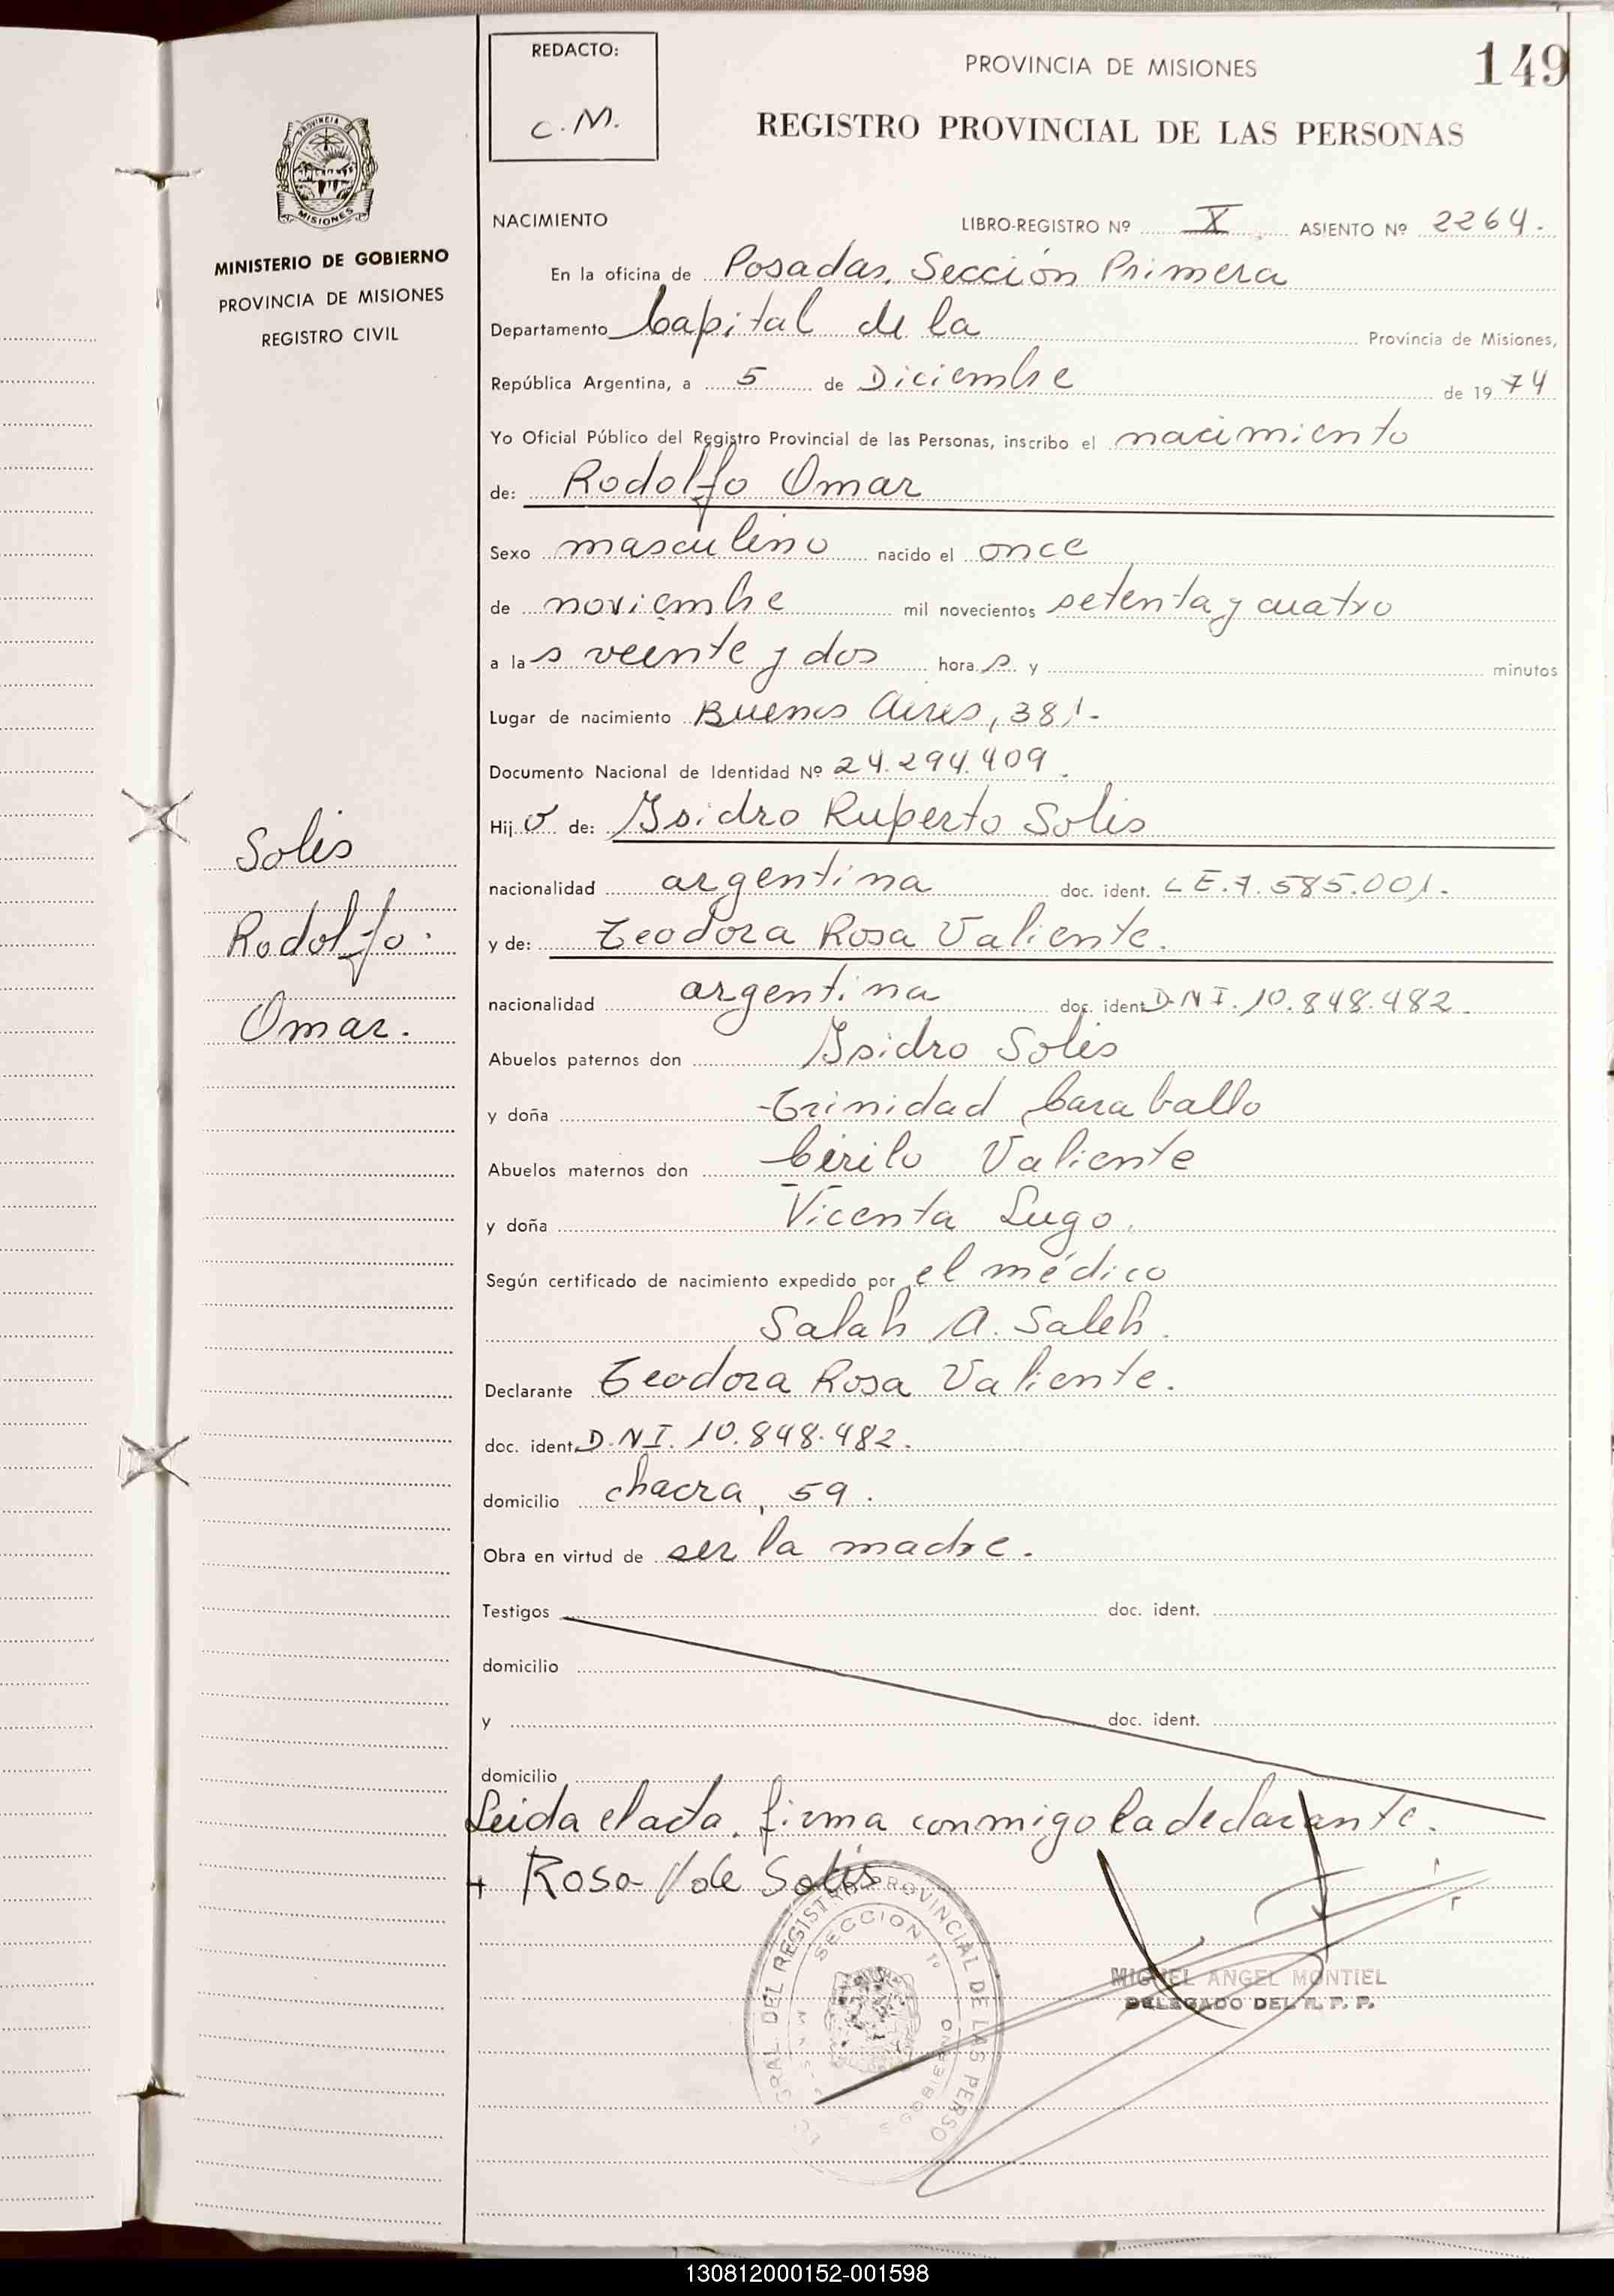 REDACTO:
C. M.
PROVINCIA DE MISIONES
149
REGISTRO PROVINCIAL DE LAS PERSONAS
PROVINCIA DE
MISIONES
MINISTERIO DE GOBIERNO
PROVINCIA DE MISIONES
REGISTRO CIVIL
NACIMIENTO LIBRO-REGISTRO Nº X ASIENTO Nº 2264.
En la oficina de Posadas, Sección Primera
Departamento Capital de la Provincia de Misiones,
República Argentina, a 5 de Diciembre de 1974
Yo Oficial Público del Registro Provincial de las Personas, inscribo el nacimiento
de: Rodolfo Omar
Sexo masculino nacido el once
de noviembre mil novecientos setenta y cuatro
a las veinte y dos horas y minutos
Lugar de nacimiento Buenos Aires, 381-
Documento Nacional de Identidad Nº 24.294.409.
Hijo de: Isidro Ruperto Solis
nacionalidad argentina doc. ident. L E. 7.585.001.
y de: Teodora Rosa Valiente.
nacionalidad argentina doc. ident. D.N I. 10.848.482.
Abuelos paternos don Isidro Solis
y doña Trinidad Caraballo
Abuelos maternos don Cirilo Valiente
y doña Vicenta Lugo.
Según certificado de nacimiento expedido por el médico
Salah A. Saleh.
Declarante Teodora Rosa Valiente.
doc. ident. D.N I. 10.848.482.
domicilio chacra, 59.
Obra en virtud de ser la madre.
Testigos doc. ident.
domicilio
y doc. ident.
domicilio
Leida el acta, firma conmigo la declarante.
+ Rosa V de Solis
Solis
Rodolfo.
Omar.
GRAL. DEL REGISTRO PROVINCIAL DE LAS PERSO
SECCION 1º
GOBIERNO
MIGUEL ANGEL MONTIEL
DELEGADO DEL R. P. P.
130812000152-001598